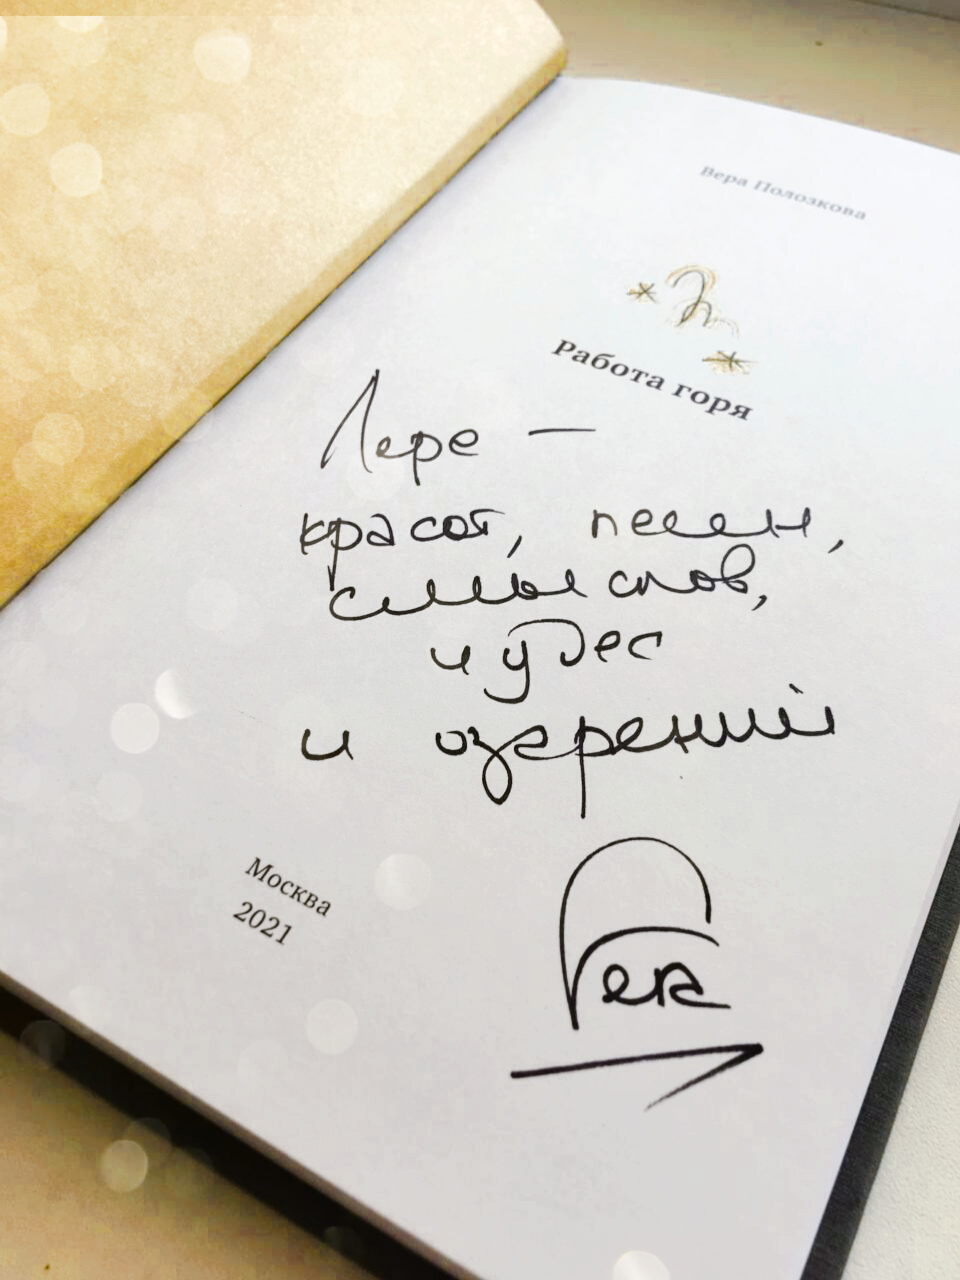 Вера Полозкова
Работа горя
Лере —
красот, песен,
смыслов,
чудес
и озарений
Москва
2021